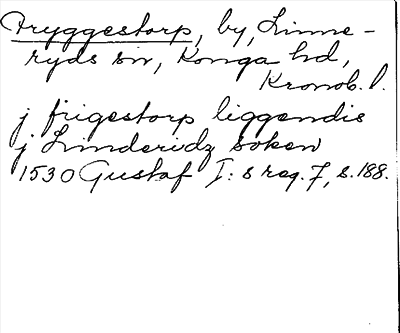 Fryggestorp, by, Linne-
ryds sn, Konga hd,
Kronob. l.
j frigestorp liggandis
j Linderidz soken
1530 Gustaf I:s reg. 7, s. 188.